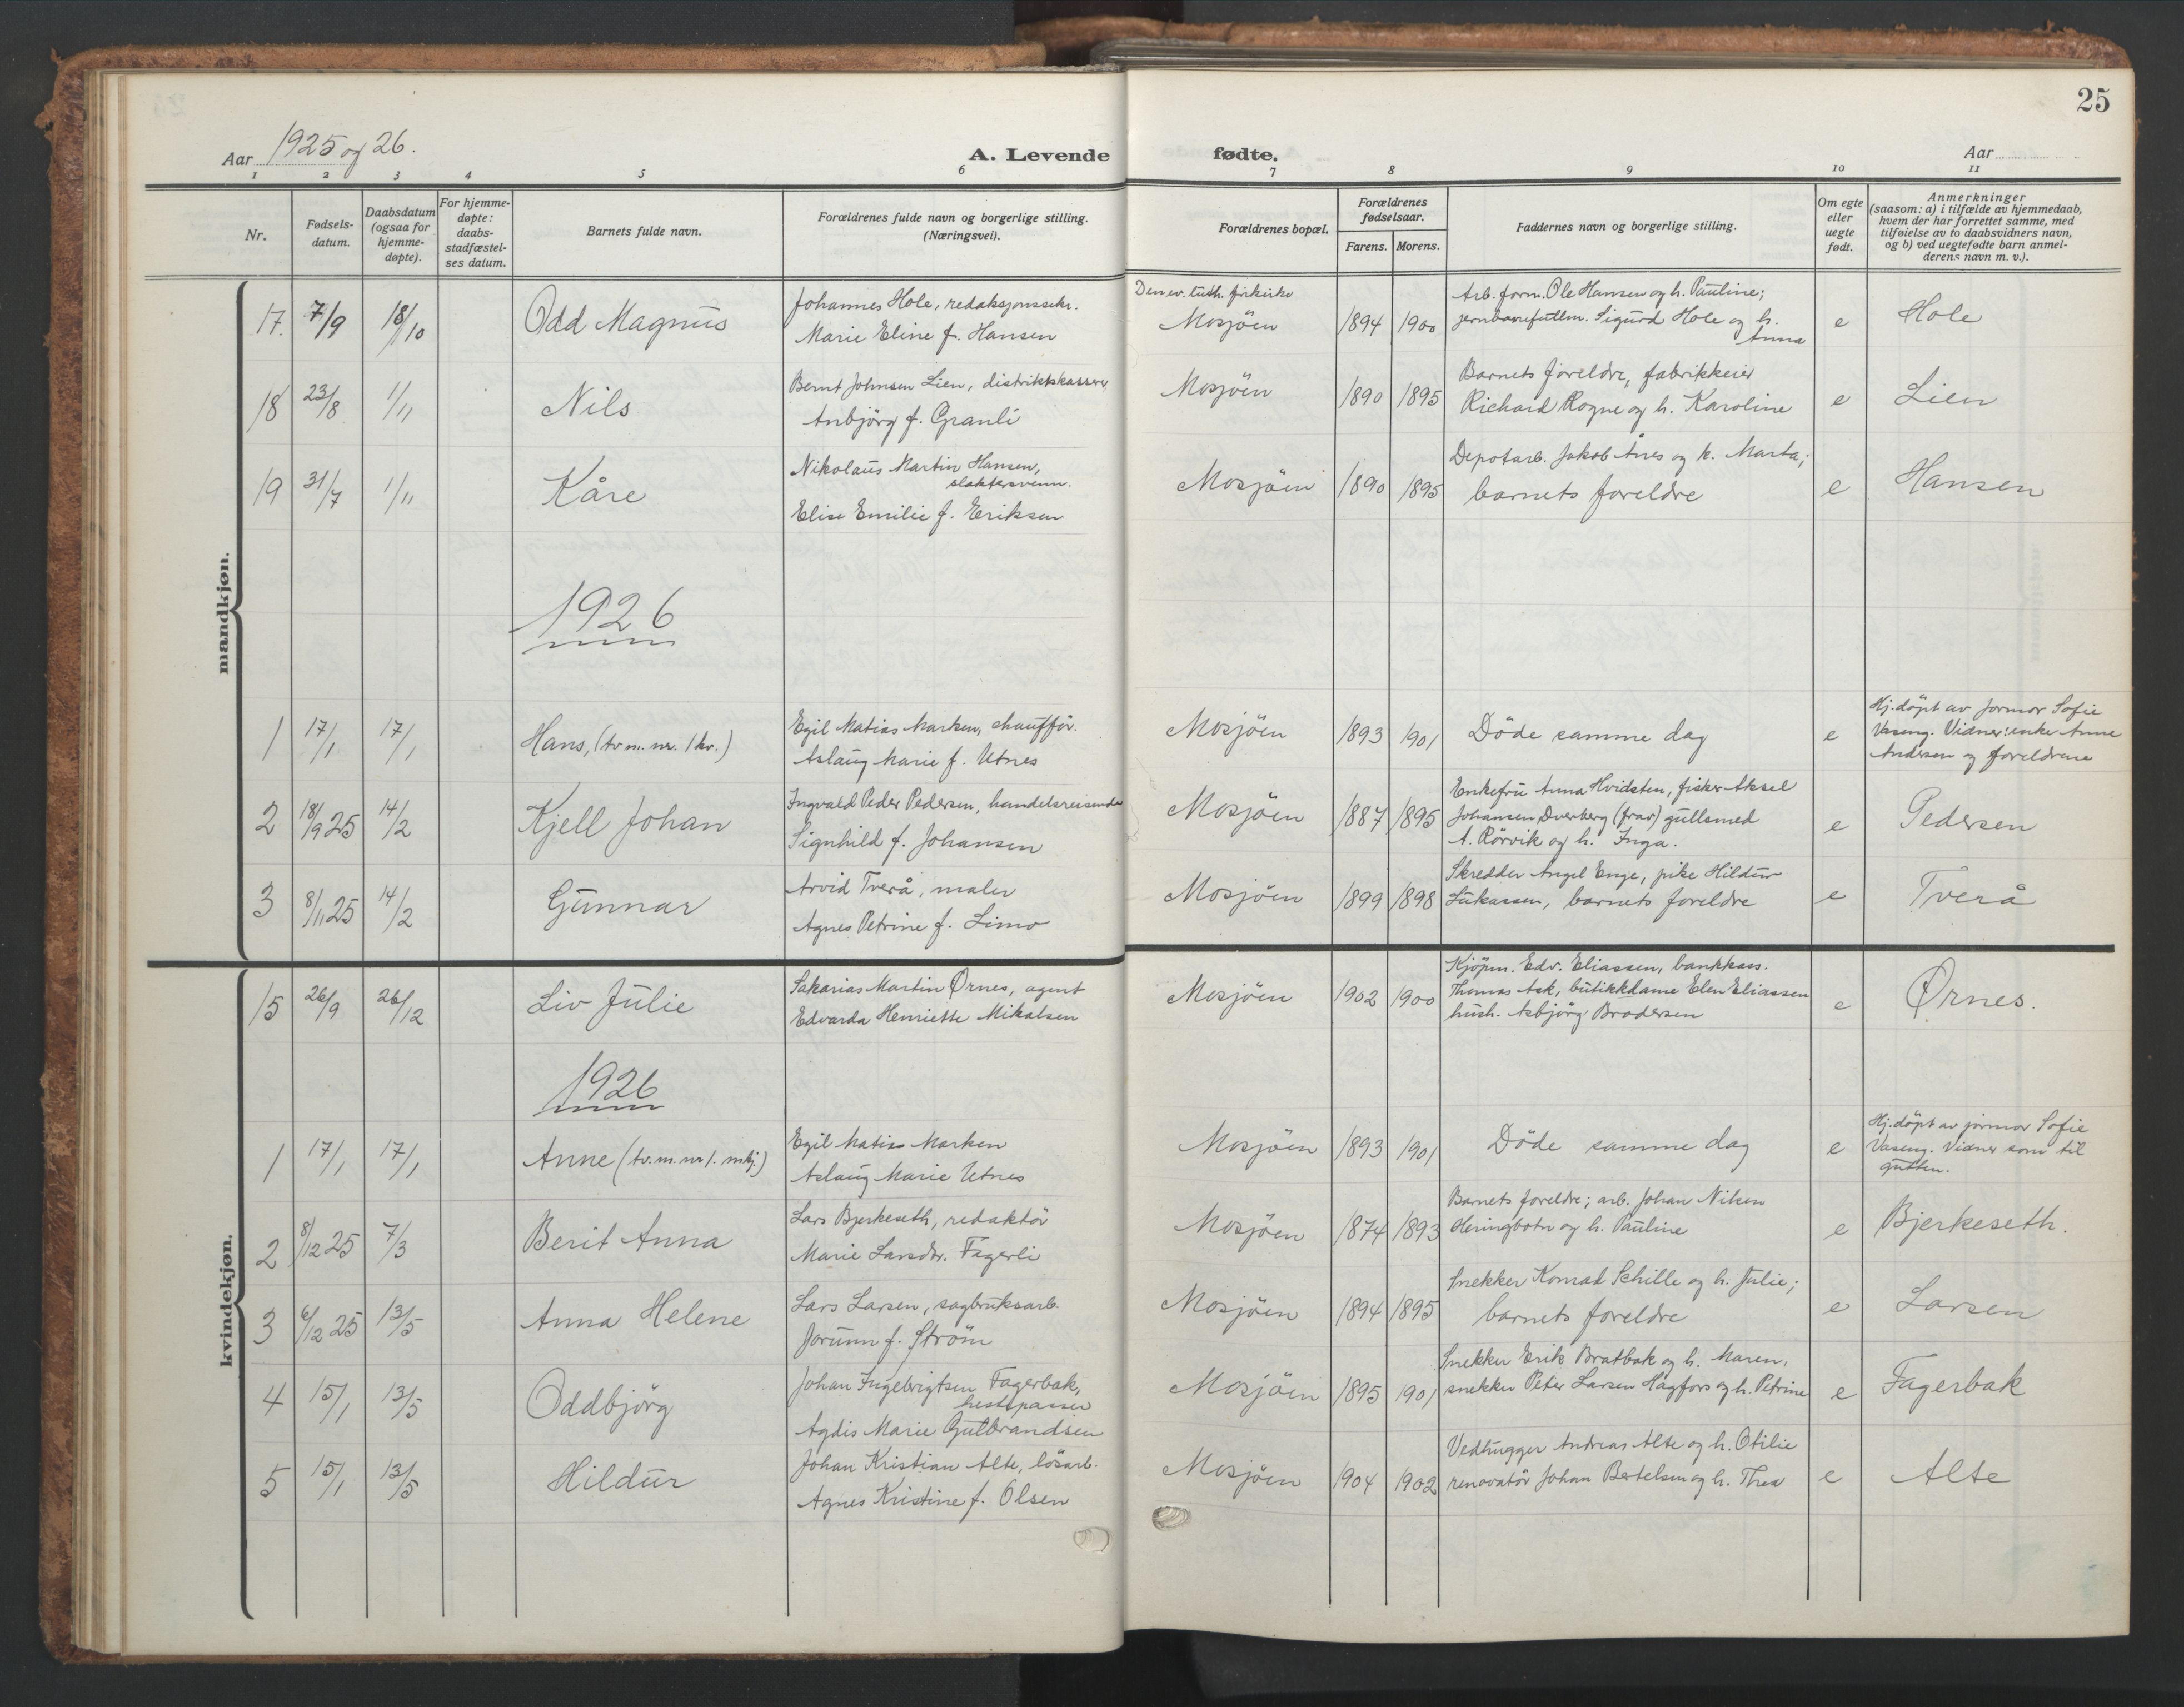 25
Aar 1925 og 26.
A. Levende fødte.
Aar
1 2 3 4 5 6 7 8 9 10 11
Nr.
Fødsels-
datum.
Daabsdatum
(ogsaa for
hjemme-
døpte).
For hjemme-
døpte:
daabs-
stadfæstel-
ses datum.
Barnets fulde navn.
Forældrenes fulde navn og borgerlige stilling.
(Næringsvei).
Forældrenes bopæl.
Forældrenes
fødselsaar.
Farens. Morens.
Faddernes navn og borgerlige stilling.
Om egte
eller
uegte
født.
Anmerkninger
(saasom: a) i tilfælde av hjemmedaab,
hvem der har forrettet samme, med
tilføielse av to daabsvidners navn,
og b) ved uegtefødte barn anmel-
derens navn m. v.).
mandkjøn.
17. 7/9 18/10 Odd Magnus
Johannes Hole, redaksjonssekr.
Marie Eline f. Hansen
Den ev. luth. frikirke
Mosjöen 1894 1900
Arb.form. Ole Hansen og h. Pauline;
jernbanefullm. Sigurd Hole og h.
Anna
e Hole
18 23/8 1/11 Nils
Bernt Johnsen Lien, distriktskasserer
Anbjörg f. Granli
Mosjöen 1890 1895
Barnets foreldre, fabrikkeier
Richard Rogne og h. Karoline
e Lien
19 31/7 1/11 Kåre
Nikolaus Martin Hansen,
slaktersvenn.
Elise Emilie f. Eriksen
Mosjöen 1890 1895
Depotarb. Jakob Ånes og h. Marta;
barnets foreldre
e Hansen
1926
1 17/1 17/1 Hans, (tv.m. nr. 1 kv.)
Egil Matias Marken, chaufför.
Aslaug Marie f. Utnes
Mosjöen 1893 1901
Döde samme dag
e
Hj.döpt av formor Sofie
Vaseng. Vidner: enke Anne
Andersen og foreldrene
2 18/9 25 14/2 Kjell Johan
Ingvald Peder Pedersen, handelsreisende
Signhild f. Johansen
Mosjöen 1887 1895
Enkefru Anna Hvidsten, fisker Aksel
Johansen Dverberg (frav) gullsmed
A. Rörvik og h. Inga.
e Pedersen
3 8/11 25 14/2 Gunnar
Arvid Tverå, maler
Agnes Petrine f. Limo
Mosjöen 1899 1898
Skredder Angel Enge, pike Hildur
Lukassen, barnets foreldre
e Tverå
kvindekjøn.
15 26/9 26/12 Liv Julie
Sakarias Martin Ørnes, agent
Edvarda Henriette Mikalsen
Mosjöen 1902 1900
Kjöpm. Edv. Eliassen, bankkass.
Thomas Ask, butikkdame Elen Eliassen
hush. Asbjörg Brodersen
e Ørnes.
1926
1 17/1 17/1 Anne (tv.m. nr 1. mkj.)
Egil Matias Marken
Aslaug Marie Utnes
Mosjöen 1893 1901
Döde samme dag
e
Hj.döpt av formor Sofie
Vaseng. Vidner som til
gutten.
2 8/12 25 7/3 Berit Anna
Lars Bjerkeseth, redaktör
Marie Larsdtr. Fagerli
Mosjöen 1874 1893
Barnets foreldre; arb. Johan Nilsen
Heringbotn og h. Pauline
e Bjerkeseth.
3 6/12 25 13/5 Anna Helene
Lars Larsen, sagbruksarb.
Jorunn f. Ström
Mosjöen 1894 1895
Snekker Konrad Schille og h. Julie;
barnets foreldre
e Larsen
4 15/1 13/5 Oddbjörg
Johan Ingebrigtsen Fagerbak,
hestepasser
Agdis Marie Gulbrandsen
Mosjöen 1895 1901
Snekker Erik Bratbak og h. Maren,
snekker Peter Larsen Hagfors og h. Petrine
e Fagerbak
5 15/1 13/5 Hildur
Johan Kristian Alte, lösarb.
Agnes Kristine f. Olsen
Mosjöen 1904 1902
Vedhugger Andreas Alte og h. Otilie
renovatör Johan Bertelsen og h. Thea
e Alte